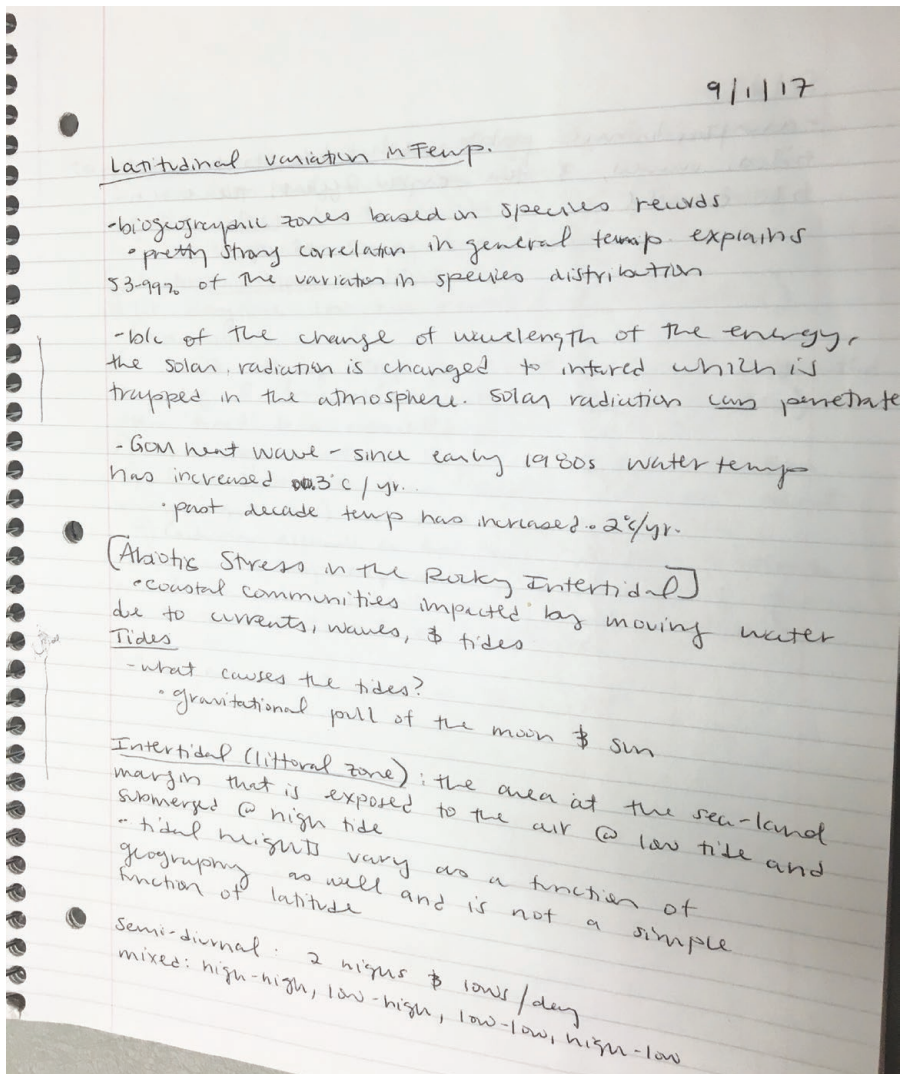 9/1/17
Latitudinal variation in Temp.
-biogeographic zones based on species records
• pretty strong correlation in general temp explains
53-99% of the variation in species distribution
-b/c of the change of wavelength of the energy,
the solar radiation is changed to infared which is
trapped in the atmosphere. Solar radiation can penetrate
- GOM heat wave - since early 1980s water temp
has increased .03°C/yr.
• past decade temp has increased .2°C/yr.
[Abiotic Stress in the Rocky Intertidal]
• coastal communities impacted by moving water
due to currents, waves, & tides
Tides
- what causes the tides?
• gravitational pull of the moon & sun
Intertidal (littoral zone): the area at the sea-land
margin that is exposed to the air @ low tide and
submerged @ high tide
- tidal heights vary as a function of
geography as well and is not a simple
function of latitude
Semi-diurnal: 2 highs & lows/day
mixed: high-high, low-high, low-low, high-low